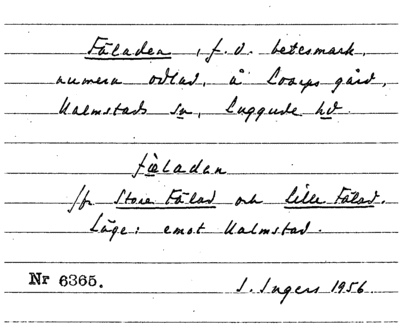 Fäladen, f.d. betesmark,
numera odlad, å Loarps gård,
Kalmstads sn, Luggude hd
fäladan
jfr Store Fälad och Lille Fälad.
Läge: emot Halmstad.
Nr 6365.
I. Ingers 1956